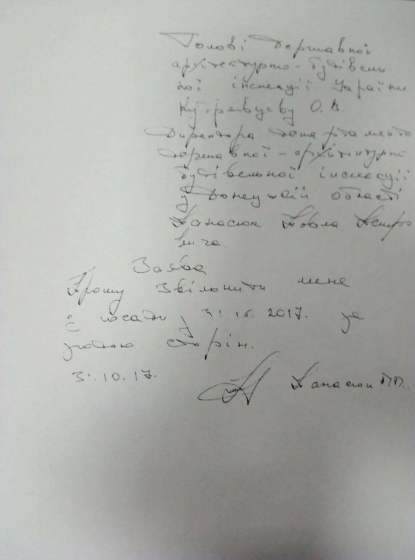 Голові Державної
архітектурно-будівель
ної інспекції України
Кудрявцеву О.В.
Директора департаменту
державної-архітектурно
будівельної інспекції
у Донецькій області
Панасюк Павла Петро
вича.
Заява
Прошу звільнити мене
з посади з 31.10.2017. за
згодою сторін.
31.10.17. Панасюк П.П.